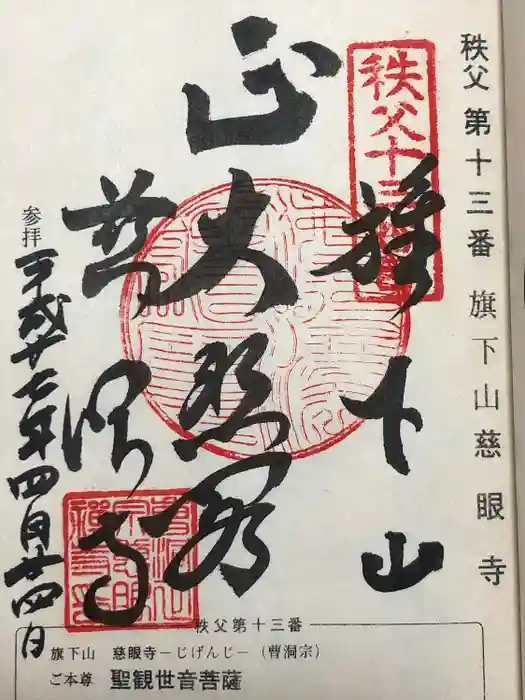 秩父 第十三番 旗下山慈眼寺
秩父十三番
旗下山
慈眼寺
参拝 平成廿七年四月廿四日
秩父第十三番
旗下山 慈眼寺―じげんじ―(曹洞宗)
ご本尊 聖観世音菩薩